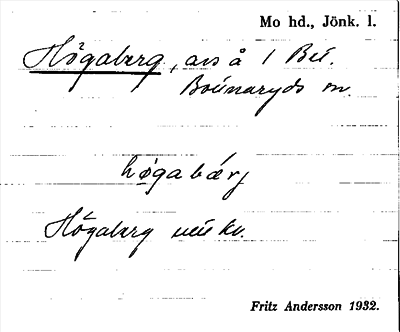 Mo hd., Jönk. l.
Högaberg, avs å 1 Bü.
Bólnaryds m.
høgabærj
Högaberg kv.
Fritz Andersson 1932.